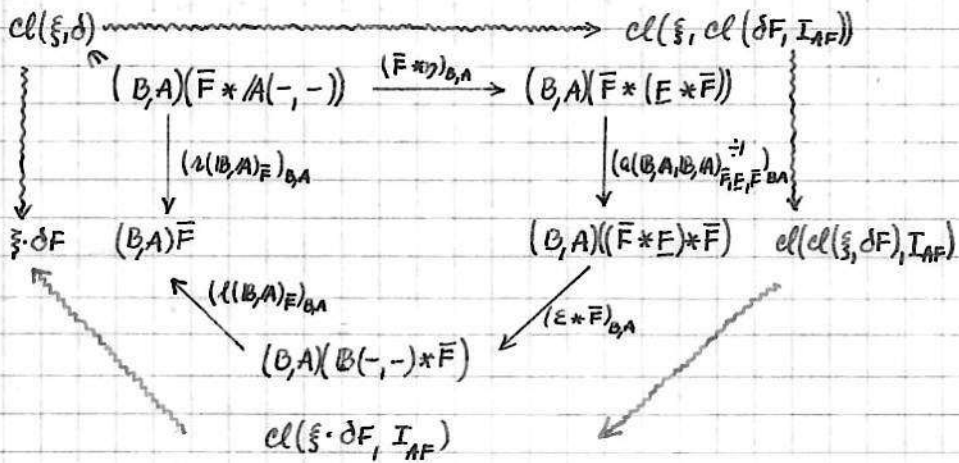 cl(ξ,δ) cl(ξ, cl(δF, I_{AF}))
(B,A)(F̄ * 𝔸(-,-)) (F̄*η)_{B,A} (B,A)(F̄ * (F̲ * F̄))
(r(𝔹,𝔸)_{F̄})_{B,A} (a(𝔹,𝔸,𝔹,𝔸)^{÷1}_{F̄,F̲,F̄})_{B,A}
ξ·δF (B,A)F̄ (B,A)((F̄ * F̲) * F̄) cl(cl(ξ,δF), I_{AF})
(l(𝔹,𝔸)_{F̄})_{B,A} (ε * F̄)_{B,A}
(B,A)(𝔹(-,-) * F̄)
cl(ξ·δF, I_{AF})